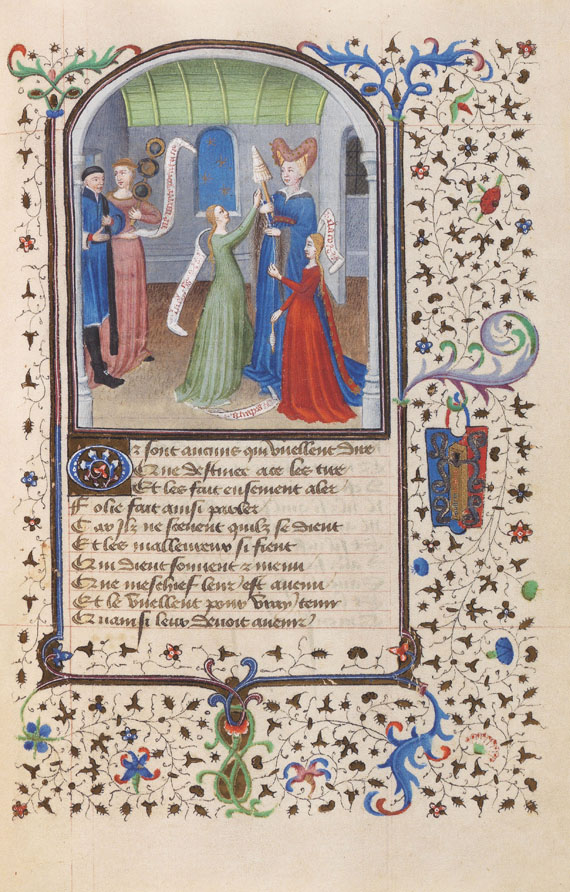 Atropos
Or sont aucuns qui vueillent dire
Que destinee a ce les tire
Et les fait ensement aler
Folie fait ainsi parler
Car ilz ne scevent quilz se dient
Et les malleureux si fient
Qui dient souvent & menu
Que meschief leur est avenu
Et le vueillent pour vray tenir
Quainsi leur devoit avenir